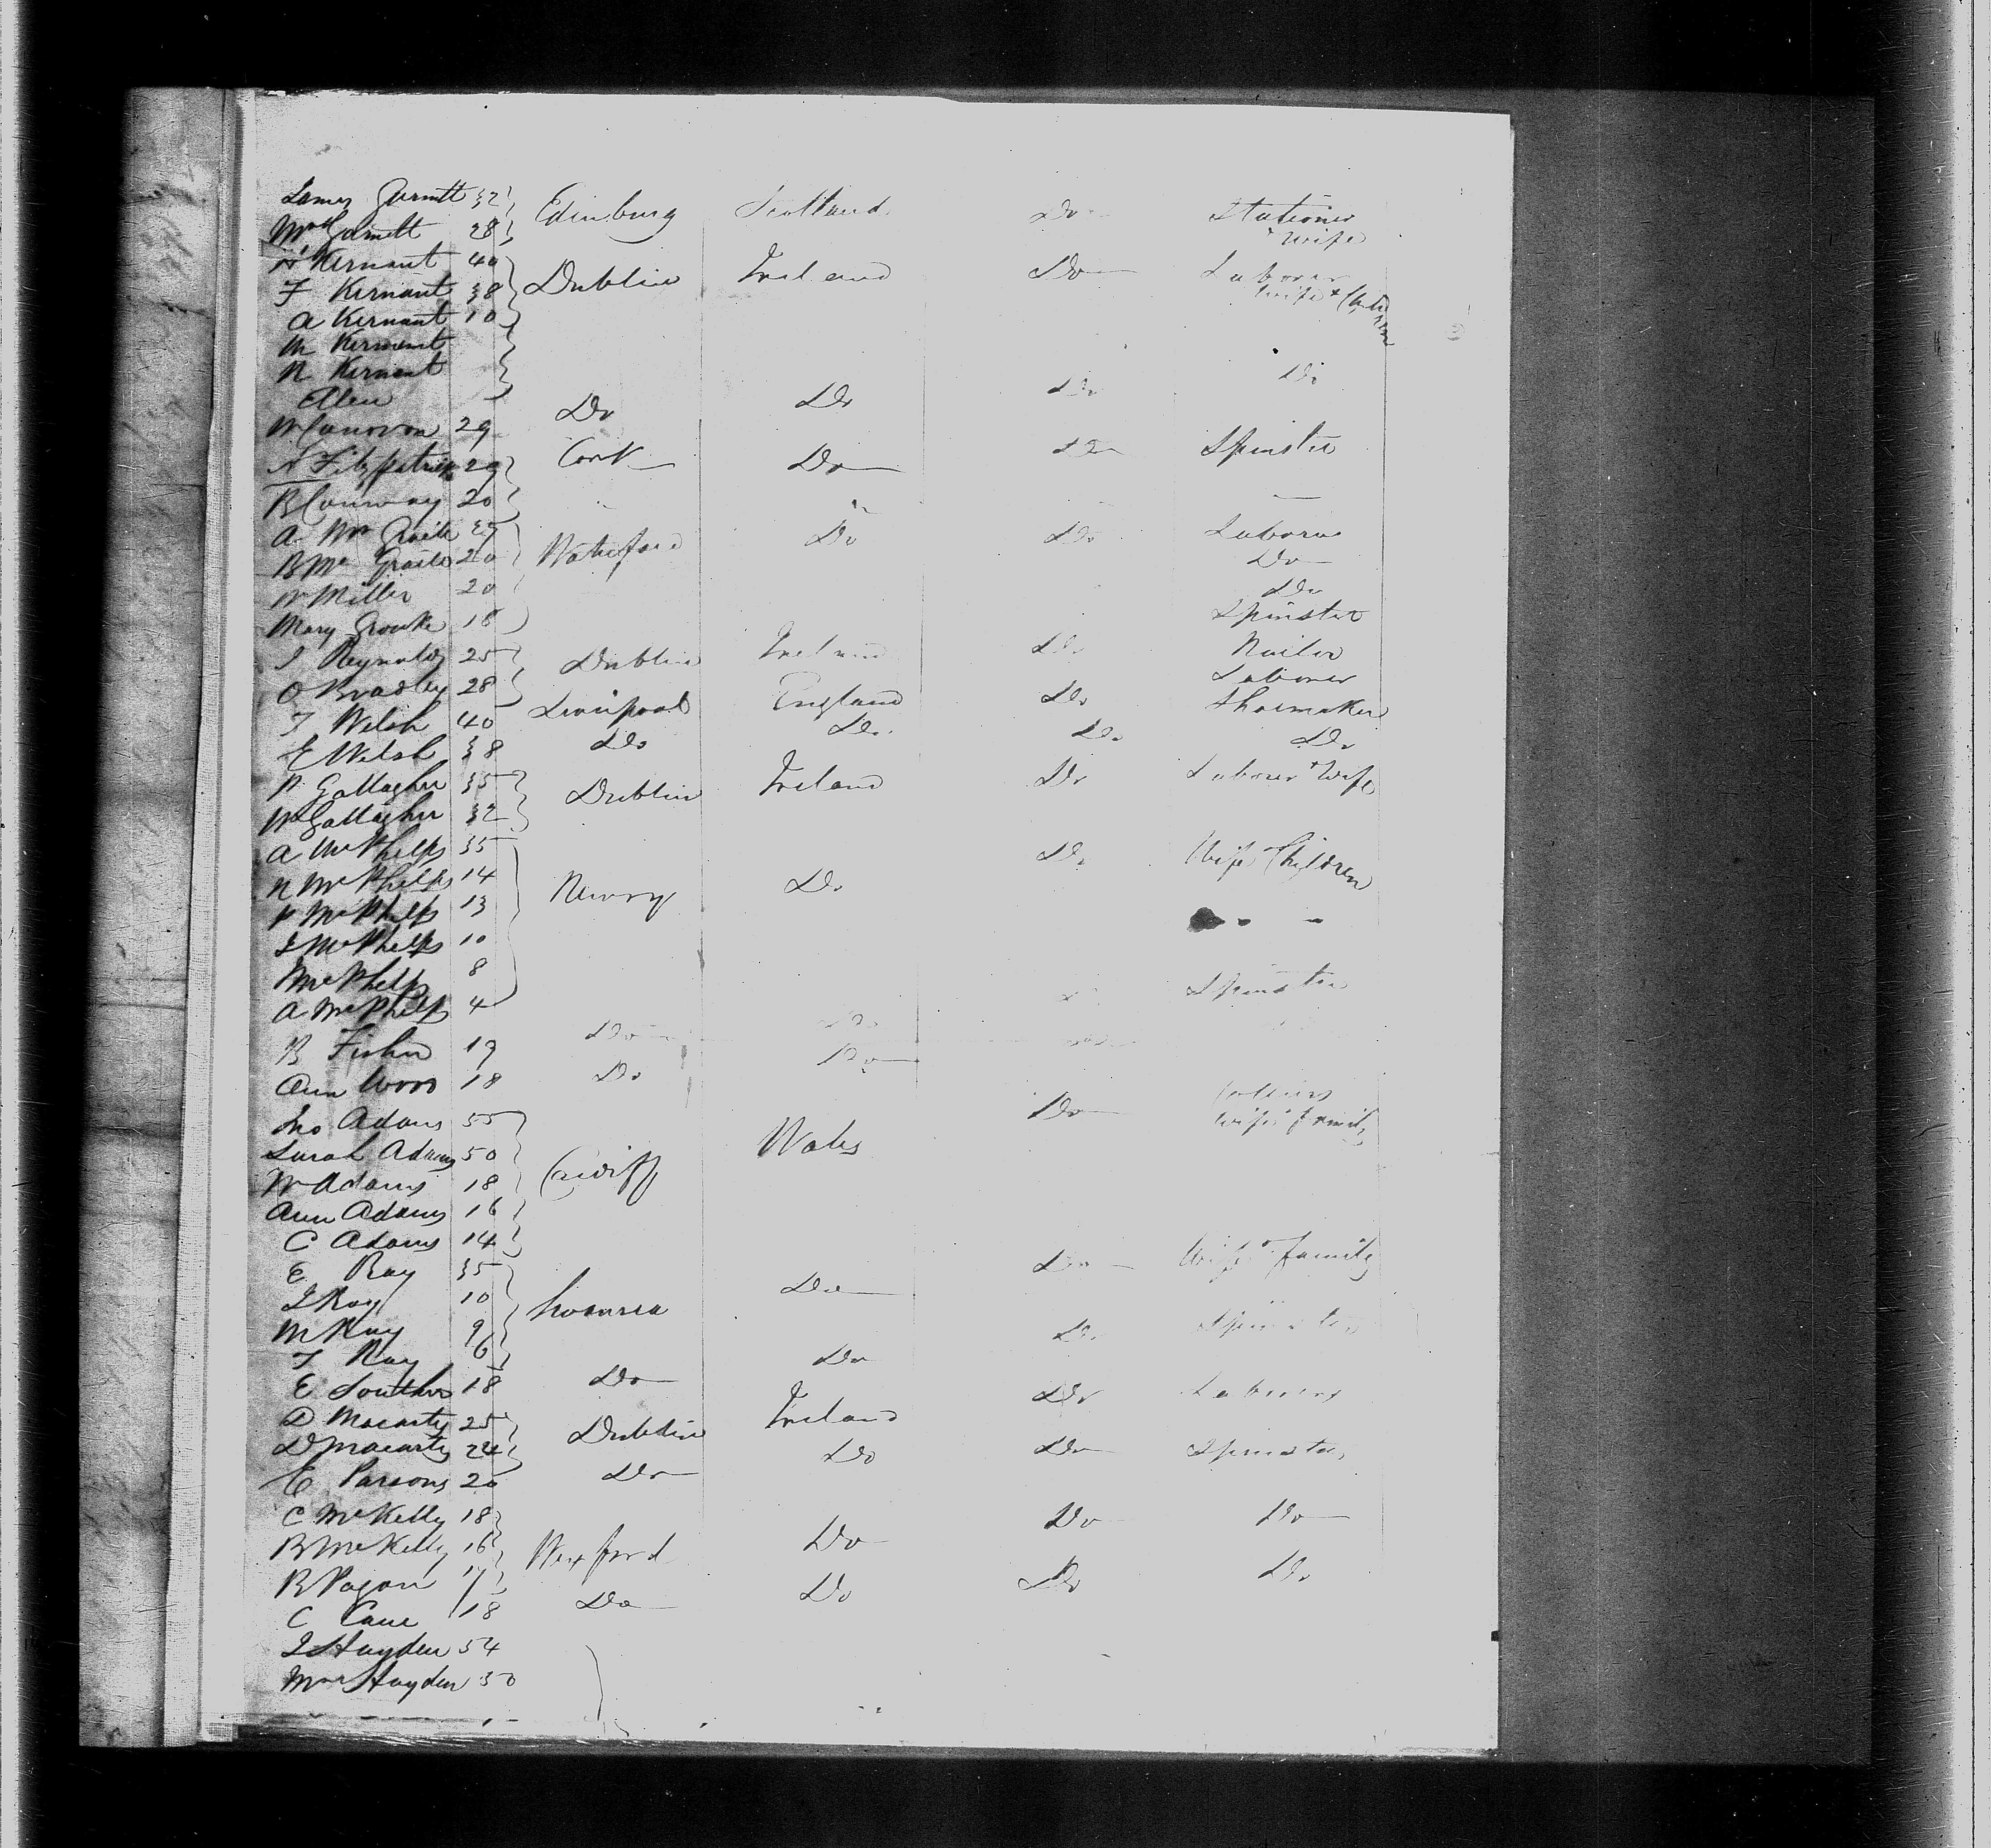 James Garnett 32 Edinburg Scotland Do Stationer
Mrs Garnett 28 & Wife
H Kernant 40 Dublin Ireland Do Laborer
F Kernant 38 Wife & Children
A Kernant 10
M Kernant
N Kernant Do
Ellen Do Do Do
W Conovon 29
A Fitzpatrick 29 Cork Do Do Spinster
B Conway 20
A. Mc Graile Waterford Do Do Laborer
B Mc Graile 20 Do
W Miller 20 Do
Mary Grouke 18 Spinster
J Reynolds 25 Dublin Ireland Do Nailer
O Bradley 28 Laborer
T Welsh 40 Liverpool England Do Shoemaker
E Welsh 38 Do Do Do Do
P Gallagher 35 Dublin Ireland Do Laborer & Wife
W Gallagher 32
A McPhelps 35 Do Wife Children
N McPhelps 14 Newry Do
P McPhelps 13
J McPhelps 10
McPhelps 8
A McPhelps 4 Spinster
B Fisher 19 Do Do
Ann Wood 18 Do Do
Jno Adams 55 Do Colliers
Sarah Adams 50 Cardiff Wales Wife & family
W Adams 18
Ann Adams 16
C Adams 14
E Ray 35 Do Wife & family
J Ray 10 Swansea Do
M Ray 9
T Ray 6 Do Do Spinster
E Souther 18 Do
D Macarty 25 Dublin Ireland Do Laborers
D Macarty 24 Do Do Spinster
E Parsons 20 Do
C McKelly 18 Do Do
B McKelly 16 Wexford Do
B Pagan 17 Do Do
C Cane 18 Do Do
J Hayden 54
Mrs Hayden 50